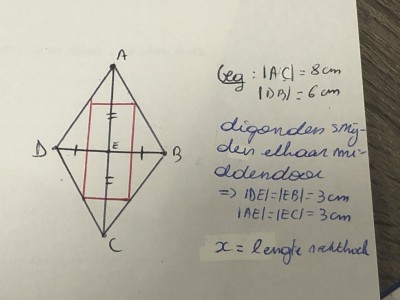 A
Geg : |AC| = 8 cm
|DB| = 6 cm
digonalen snij-
den elkaar mi-
ddendoor
D E B
=> |DE| = |EB| = 3 cm
|AE| = |EC| = 3 cm
C
x = lengte rechthoek